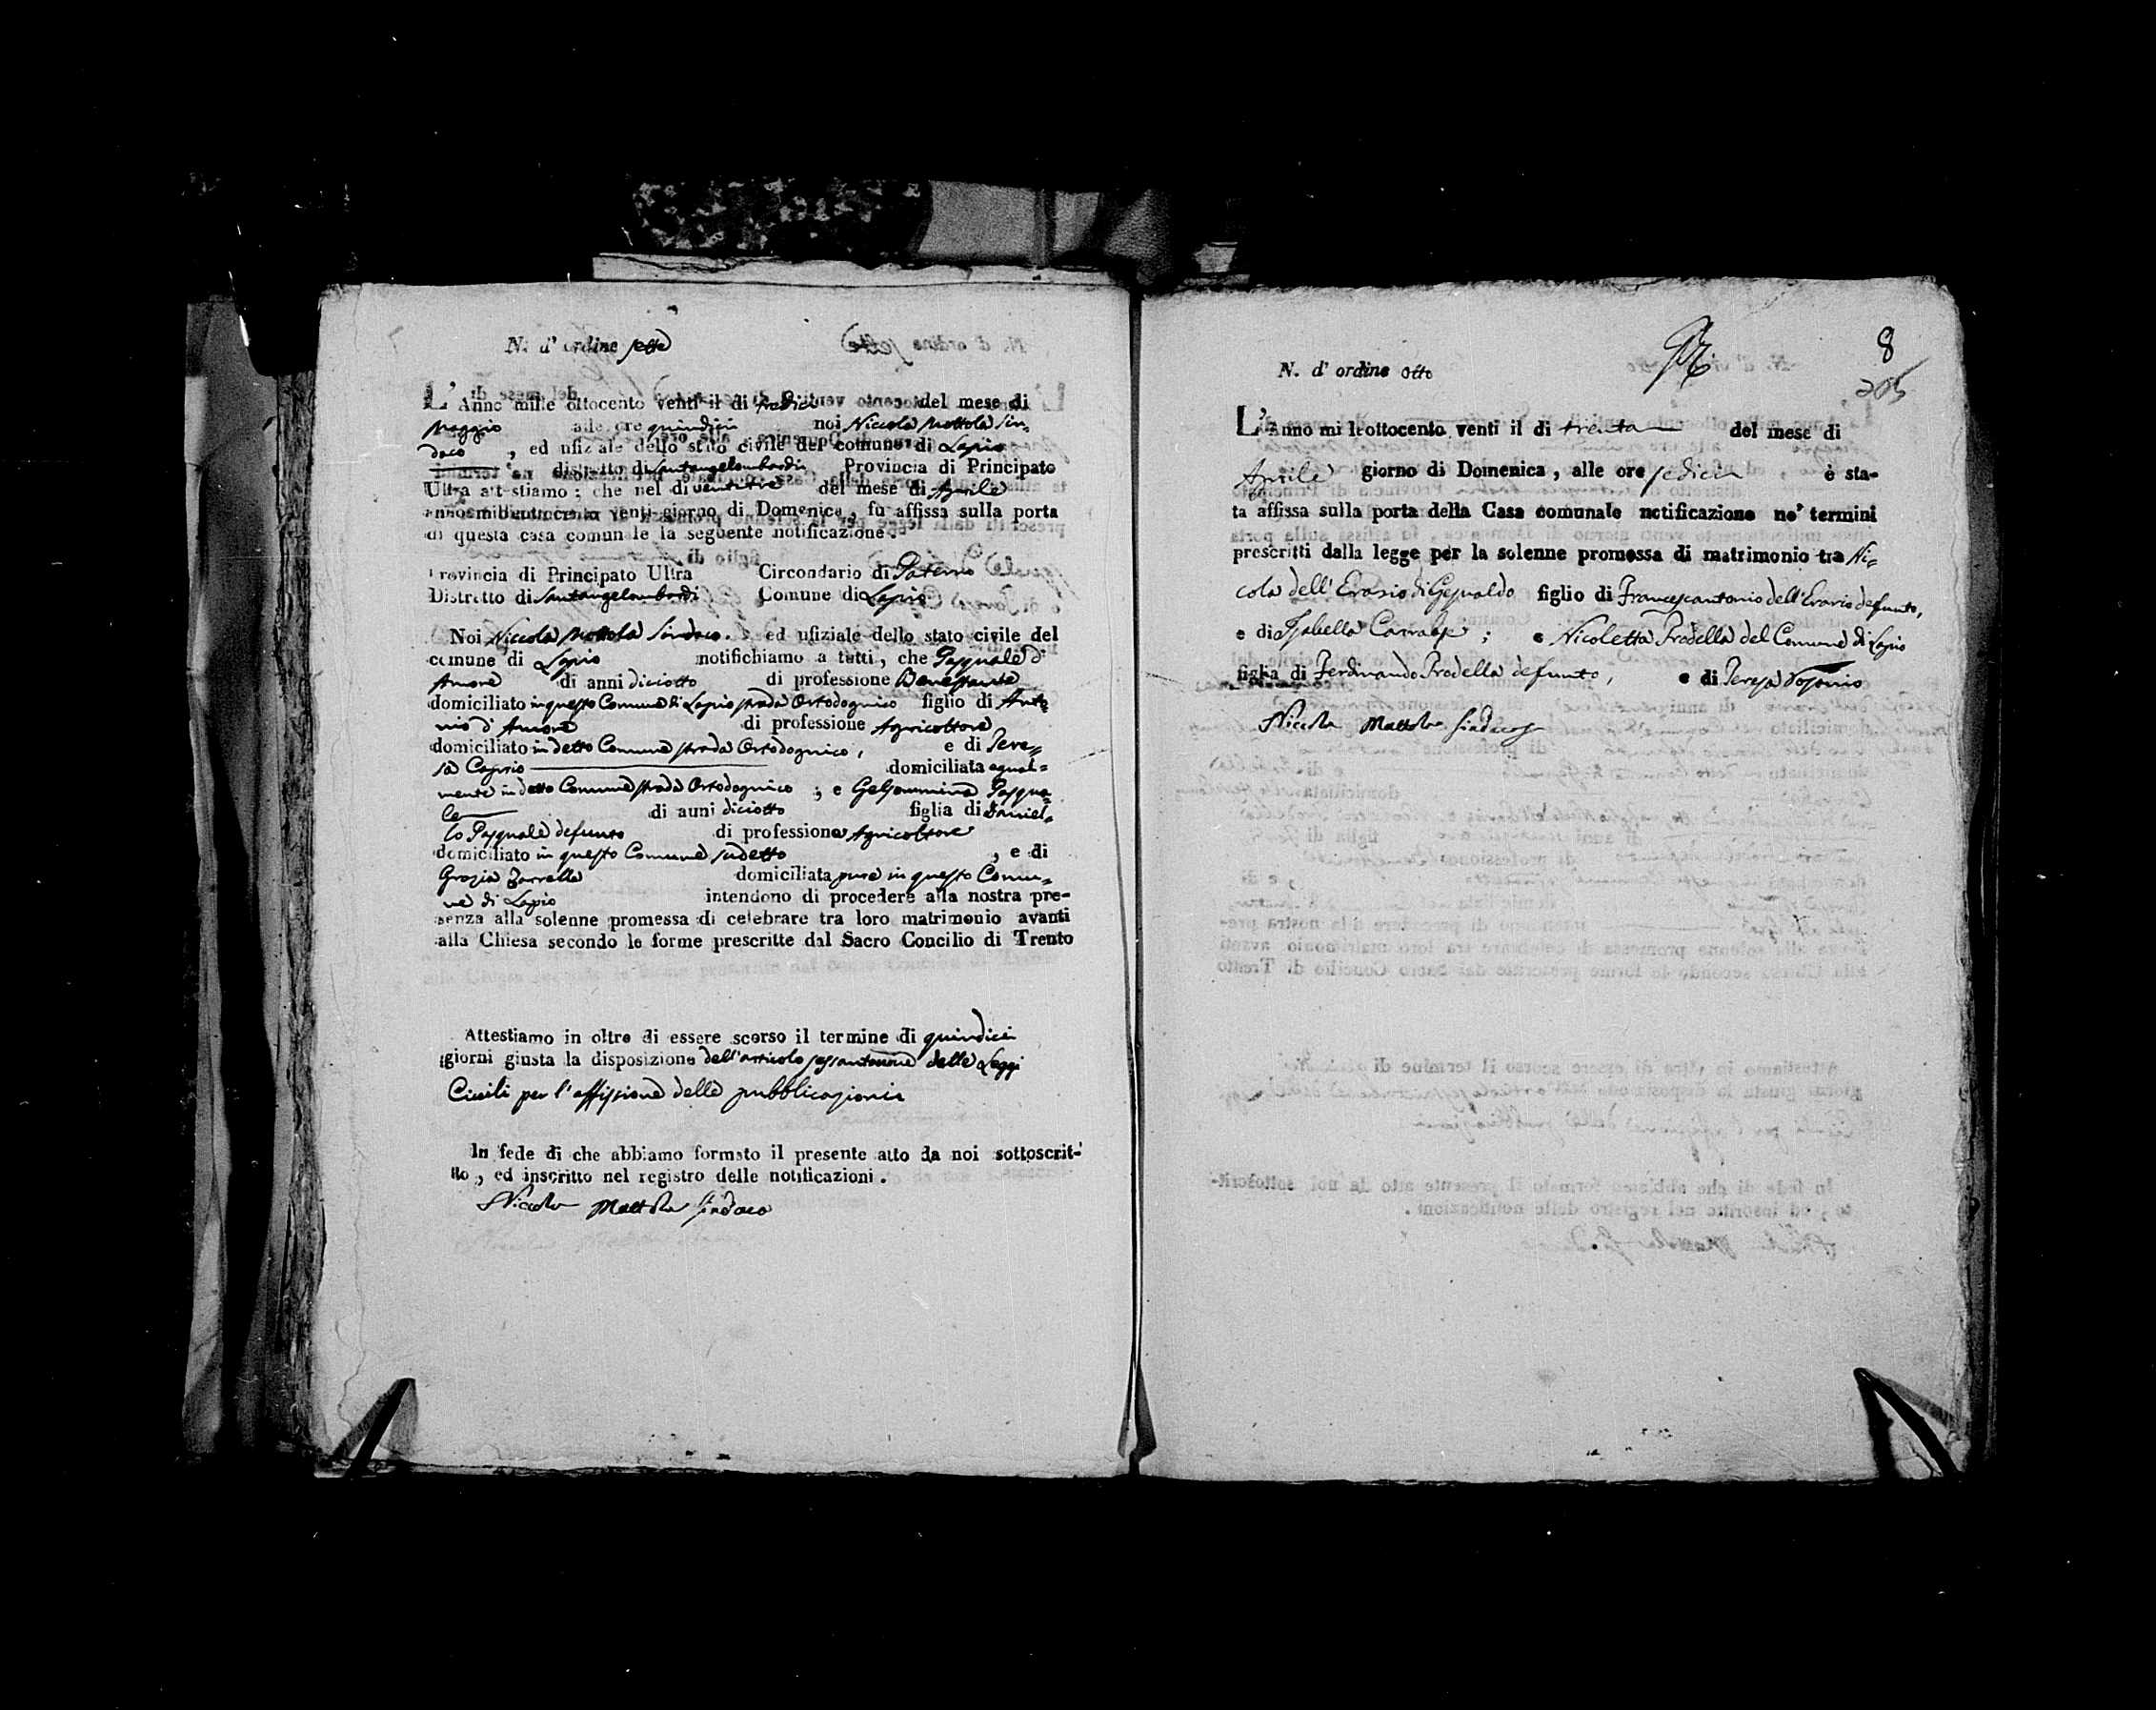 N. d' ordine sette
L' Anno mille ottocento venti il di tredici del mese di
Maggio alle ore quindici noi Niccola Mottola Sin=
daco, ed ufiziale dello stato civile del comune di Lapio
distretto di Santangelombardi Provincia di Principato
Ultra attestiamo; che nel di ventitre del mese di Aprile
anno milleottocento venti giorno di Domenica, fu affissa sulla porta
di questa casa comunale la seguente notificazione.
Provincia di Principato Ultra Circondario di Paterno
Distretto di Santangelombardi Comune di Lapio
Noi Niccola Mottola Sindaco. ed ufiziale dello stato civile del
comune di Lapio notifichiamo a tutti, che Pasquale d'
Amore di anni diciotto di professione Benestante
domiciliato in questo Comune di Lapio strada Ortodognico figlio di Anto=
nio d'Amore di professione Agricoltore
domiciliato in detto Comune strada Ortodognico, e di Tere=
sa Caprio domiciliata egual=
mente in detto Comune strada Ortodognico; e Gelsommina Pasqua=
le di anni diciotto figlia di Daniel=
lo Pasquale defunto di professione Agricoltore
domiciliato in questo Comune sudetto, e di
Grazia Zarrella domiciliata pure in questo Comu=
ne di Lapio intendono di procedere alla nostra pre-
senza alla solenne promessa di celebrare tra loro matrimonio avanti
alla Chiesa secondo le forme prescritte dal Sacro Concilio di Trento
Attestiamo in oltre di essere scorso il termine di quindici
giorni giusta la disposizione dell'articolo sessantanove delle Leggi
Civili per l'affissione delle pubblicazioni
In fede di che abbiamo formato il presente atto da noi sottoscrit-
to, ed inscritto nel registro delle notificazioni.
Niccola Mottola Sindaco
8
205
N. d' ordine otto
L' Anno mille ottocento venti il di trenta del mese di
Aprile giorno di Domenica, alle ore sedici è sta-
ta affissa sulla porta della Casa comunale notificazione ne' termini
prescritti dalla legge per la solenne promessa di matrimonio tra Ni=
cola dell'Erario di Gesualdo figlio di Francescantonio dell'Erario defunto,
e di Isabella; e Nicoletta Prodella del Comune di Lapio
figlia di Ferdinando Prodella defunto, e di Teresa
Niccola Mottola Sindaco